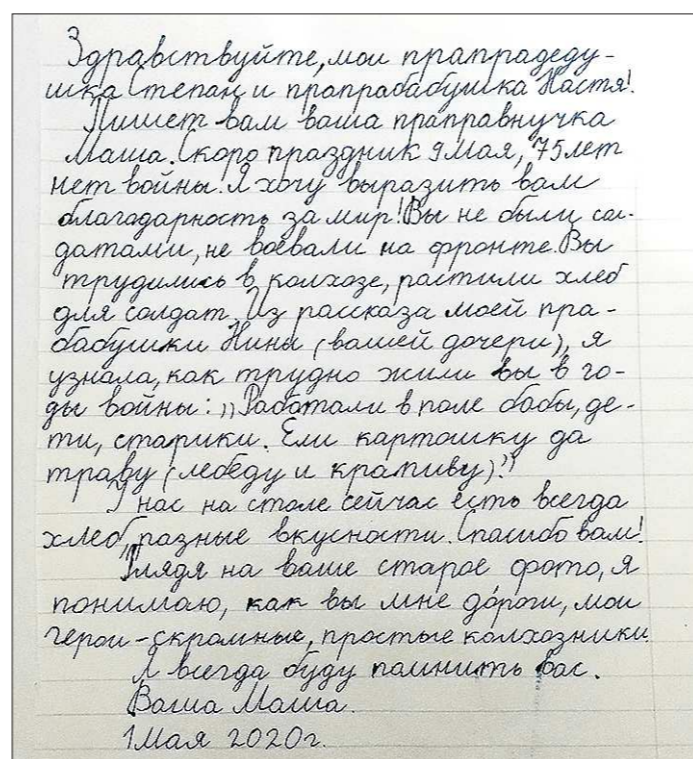 Здравствуйте, мои прапрадеду-
шка Степан и прапрабабушка Настя!
Пишет вам ваша праправнучка
Маша. Скоро праздник 9 мая, 75 лет
нет войны. Я хочу выразить вам
благодарность за мир! Вы не были сол-
датами, не воевали на фронте. Вы
трудились в колхозе, растили хлеб
для солдат. Из рассказа моей пра-
бабушки Нины (вашей дочери), я
узнала, как трудно жили вы в го-
ды войны: „Работали в поле бабы, де-
ти, старики. Ели картошку да
траву (лебеду и крапиву)."
У нас на столе сейчас есть всегда
хлеб, разные вкусности. Спасибо вам!
Глядя на ваше старое фото, я
понимаю, как вы мне дороги, мои
герои - скромные, простые колхозники.
Я всегда буду помнить вас.
Ваша Маша.
1 Мая 2020г.